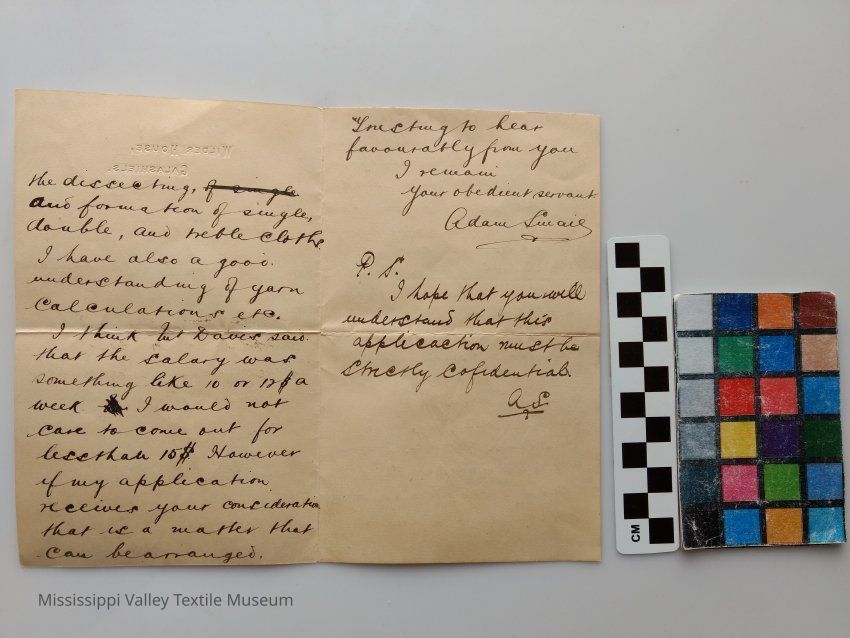 WILDER HOUSE,
GALASHIELS.
the dissecting, of single
and formation of single,
double, and treble cloths.
I have also a good
understanding of yarn
calculations etc.
I think Davis said
that the salary was
something like 10 or 12$ a
week I would not
care to come out for
less than 10$. However
if my application
receives your consideration
that is a matter that
can be arranged.
Trusting to hear
favourably from you
I remain
Your obedient servant.
Adam Smail
P. S.
I hope that you will
understand that this
application must be
strictly cofidential.
A.S.
CM
Mississippi Valley Textile Museum